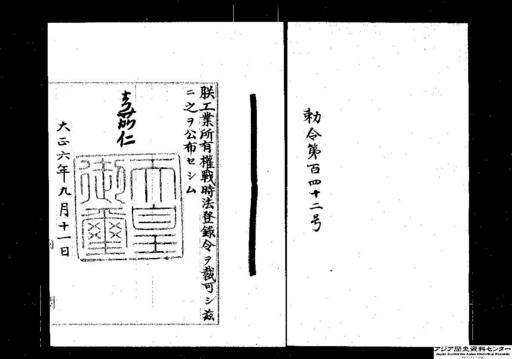 勅令第百四十二号
朕工業所有權戰時法登録令ヲ裁可シ茲
ニ之ヲ公布セシム
嘉仁
天皇
御璽
大正六年九月十一日
アジア歴史資料センター
Japan Center for Asian Historical Records